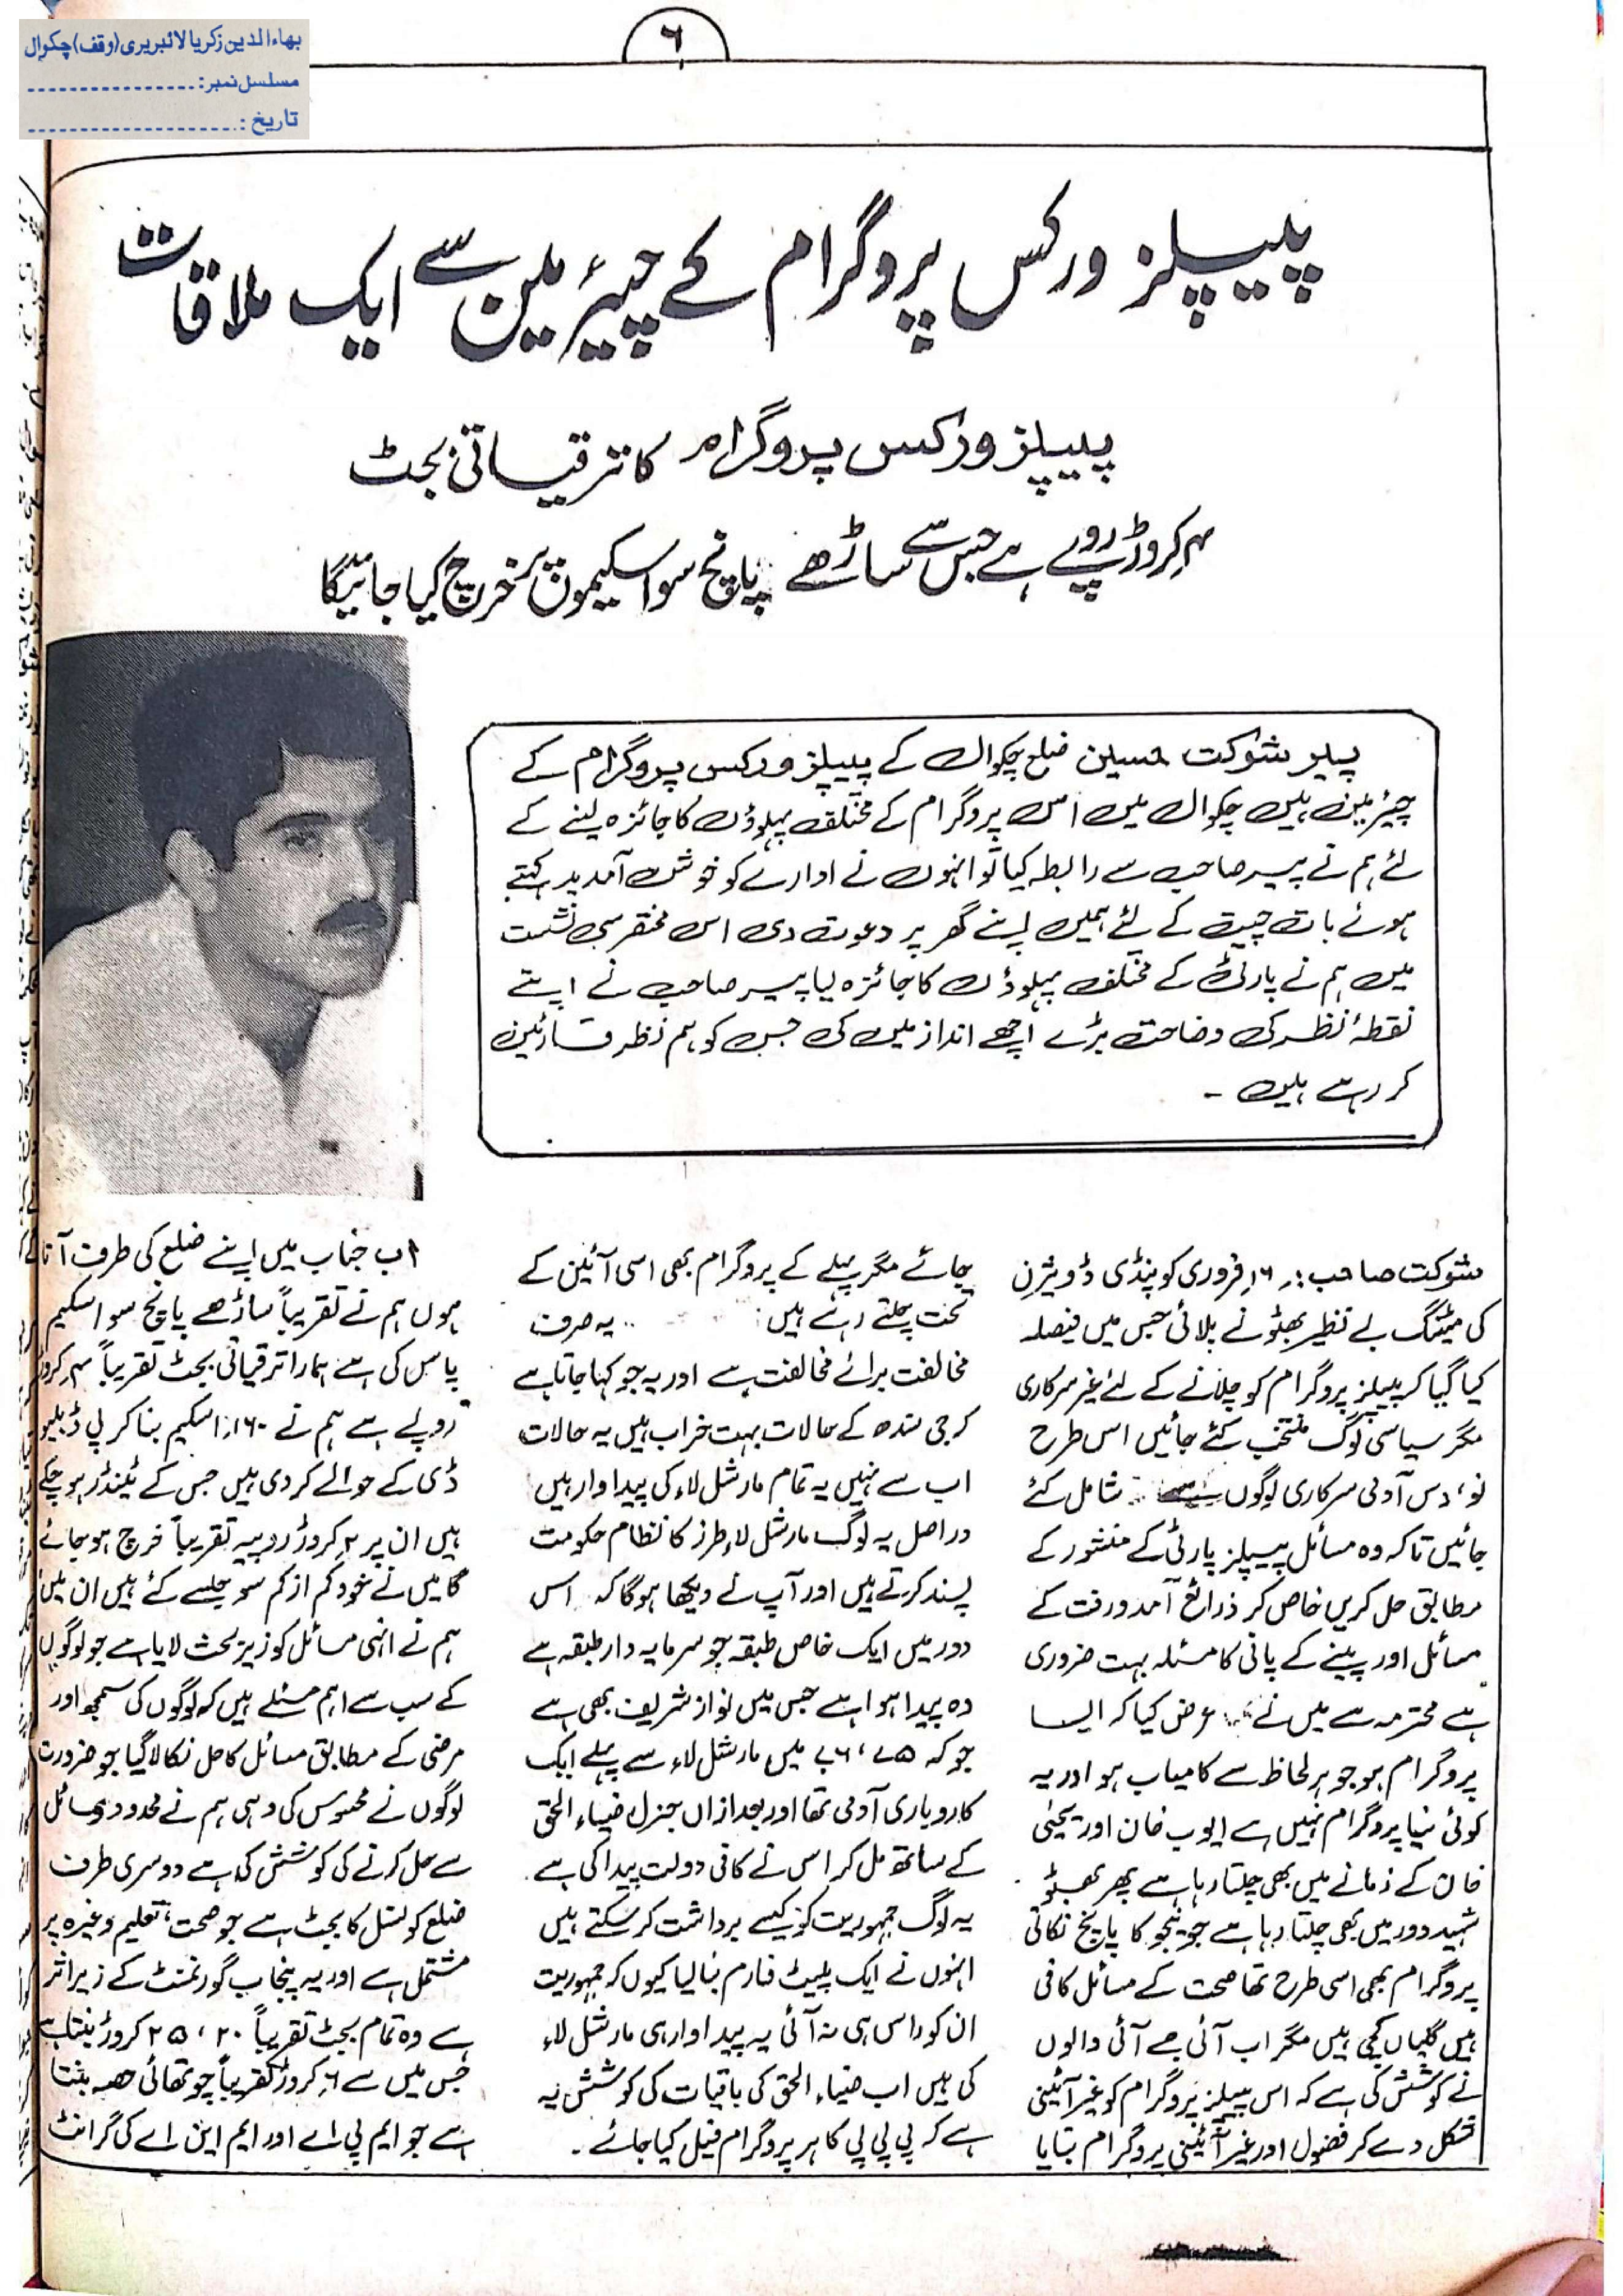 بہاءالدین زکریا لائبریری (وقف) چکوال
مسلسل نمبر:
تاریخ:
۶
پیپلز ورکس پروگرام کے چیئرمین سے ایک ملاقات
پیپلز ورکس پروگرام کا ترقیاتی بجٹ
۴ کروڑ روپے ہے جس سے ساڑھے پانچ سو اسکیموں پر خرچ کیا جائیگا
پیر شوکت حسین ضلع چکوال کے پیپلز ورکس پروگرام کے
چیئرمین ہیں چکوال میں اس پروگرام کے مختلف پہلوؤں کا جائزہ لینے کے
لئے ہم نے پیر صاحب سے رابطہ کیا تو انہوں نے ادارے کو خوش آمدید کہتے
ہوئے بات چیت کے لئے ہمیں اپنے گھر پر دعوت دی اس مختصر سی نشست
میں ہم نے پارٹی کے مختلف پہلوؤں کا جائزہ لیا پیر صاحب نے اپنے
نقطۂ نظر کی وضاحت بڑے اچھے انداز میں کی جس کو ہم نظر قارئین
کر رہے ہیں ۔
شوکت صاحب: ۱۶ فروری کو پنڈی ڈویژن
کی میٹنگ بے نظیر بھٹو نے بلائی جس میں فیصلہ
کیا گیا کہ پیپلز پروگرام کو چلانے کے لئے غیر سرکاری
مگر سیاسی لوگ منتخب کئے جائیں اس طرح
نو، دس آدمی سرکاری لوگوں شامل کئے
جائیں تاکہ وہ مسائل پیپلز پارٹی کے منشور کے
مطابق حل کریں خاص کر ذرائع آمد ورفت کے
مسائل اور پینے کے پانی کا مسئلہ بہت ضروری
ہے محترمہ سے میں نے عرض کیا کہ ایسا
پروگرام ہو جو ہر لحاظ سے کامیاب ہو اور یہ
کوئی نیا پروگرام نہیں ہے ایوب خان اور یحیٰی
خان کے زمانے میں بھی چلتا رہا ہے پھر بھٹو
شہید دور میں بھی چلتا رہا ہے جونیجو کا پانچ نکاتی
پروگرام بھی اسی طرح تھا صحت کے مسائل کافی
ہیں گلیاں کچی ہیں مگر اب آئی جے آئی والوں
نے کوشش کی ہے کہ اس پیپلز پروگرام کو غیر آئینی
شکل دے کر فضول اور غیر آئینی پروگرام بتایا
جائے مگر پہلے کے پروگرام بھی اسی آئین کے
تحت چلتے رہے ہیں: یہ صرف
مخالفت برائے مخالفت ہے اور یہ جو کہا جاتا ہے
کہ جی سندھ کے حالات بہت خراب ہیں یہ حالات
اب سے نہیں یہ تمام مارشل لاء کی پیداوار ہیں
دراصل یہ لوگ مارشل لاء طرز کا نظام حکومت
پسند کرتے ہیں اور آپ نے دیکھا ہوگا کہ اس
دور میں ایک خاص طبقہ جو سرمایہ دار طبقہ ہے
وہ پیدا ہوا ہے جس میں نواز شریف بھی ہے
جو کہ ۷۵، ۷۶ میں مارشل لاء سے پہلے ایک
کاروباری آدمی تھا اور بعد ازاں جنرل ضیاء الحق
کے ساتھ مل کر اس نے کافی دولت پیدا کی ہے
یہ لوگ جمہوریت کو کیسے برداشت کر سکتے ہیں
انہوں نے ایک پلیٹ فارم بنا لیا کیوں کہ جمہوریت
ان کو راس ہی نہ آئی یہ پیداوار ہی مارشل لاء
کی ہیں اب ضیاء الحق کی باقیات کی کوشش یہ
ہے کہ پی پی پی کا ہر پروگرام فیل کیا جائے ۔
اب جناب میں اپنے ضلع کی طرف آتا
ہوں ہم نے تقریباً ساڑھے پانچ سو اسکیم
پاس کی ہے ہمارا ترقیاتی بجٹ تقریباً ۴ کروڑ
روپے ہے ہم نے ۱۶۰ اسکیم بنا کر پی ڈبلیو
ڈی کے حوالے کر دی ہیں جس کے ٹینڈر ہو چکے
ہیں ان پر ۲ کروڑ روپیہ تقریباً خرچ ہو جائے
گا میں نے خود کم از کم سو جلسے کئے ہیں ان میں
ہم نے انہی مسائل کو زیر بحث لایا ہے جو لوگوں
کے سب سے اہم مسئلے ہیں کہ لوگوں کی سمجھ اور
مرضی کے مطابق مسائل کا حل نکالا گیا جو ضرورت
لوگوں نے محسوس کی وہی ہم نے محدود وسائل
سے حل کرنے کی کوشش کی ہے دوسری طرف
ضلع کونسل کا بجٹ ہے جو صحت، تعلیم وغیرہ پر
مشتمل ہے اور یہ پنجاب گورنمنٹ کے زیر اثر
ہے وہ تمام بجٹ تقریباً ۲۰، ۲۵ کروڑ بنتا ہے
جس میں سے ۶ کروڑ تقریباً چوتھائی حصہ بنتا
ہے جو ایم پی اے اور ایم این اے کی گرانٹ